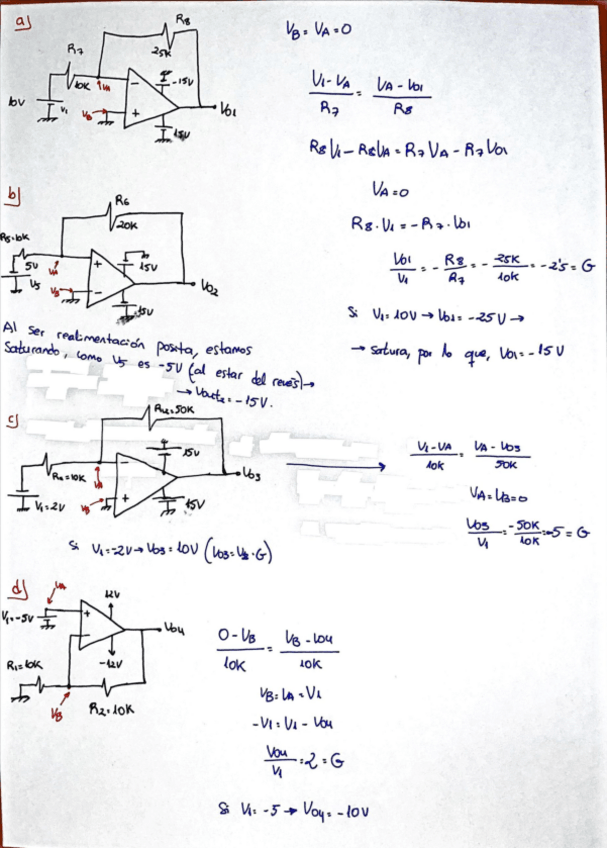 a)
R8
25K
R7
10K
VA
-15V
10V
V1
VB
15V
VO1
VB = VA = 0
V1 - VA / R7 = VA - VO1 / R8
R8V1 - R8VA = R7VA - R7VO1
VA = 0
R8·V1 = -R7·VO1
VO1/V1 = -R8/R7 = -25K/10K = -2'5 = G
Si V1 = 10V → VO1 = -25V →
→ satura, por lo que, VO1 = -15V
b)
R6
20K
R5=10K
5V
V5
VA
VB
15V
15V
VO2
Al ser realimentación posita, estamos
saturando, como V5 es -5V (al estar del revés) →
→ Vout2 = -15V.
c)
R12=50K
15V
VA
VB
V1=2V
15V
VO3
V1 - VA / 10K = VA - VO3 / 50K
VA = VB = 0
VO3/V1 = -50K/10K = -5 = G
Si V1 = -2V → VO3 = 10V
d)
VA
12V
V1=-5V
VO4
-12V
R1=10K
VB
R2=10K
0 - VB / 10K = VB - VO4 / 10K
VB = VA = V1
-V1 = V1 - VO4
VO4/V1 = 2 = G
Si V1 = -5 → VO4 = -10V